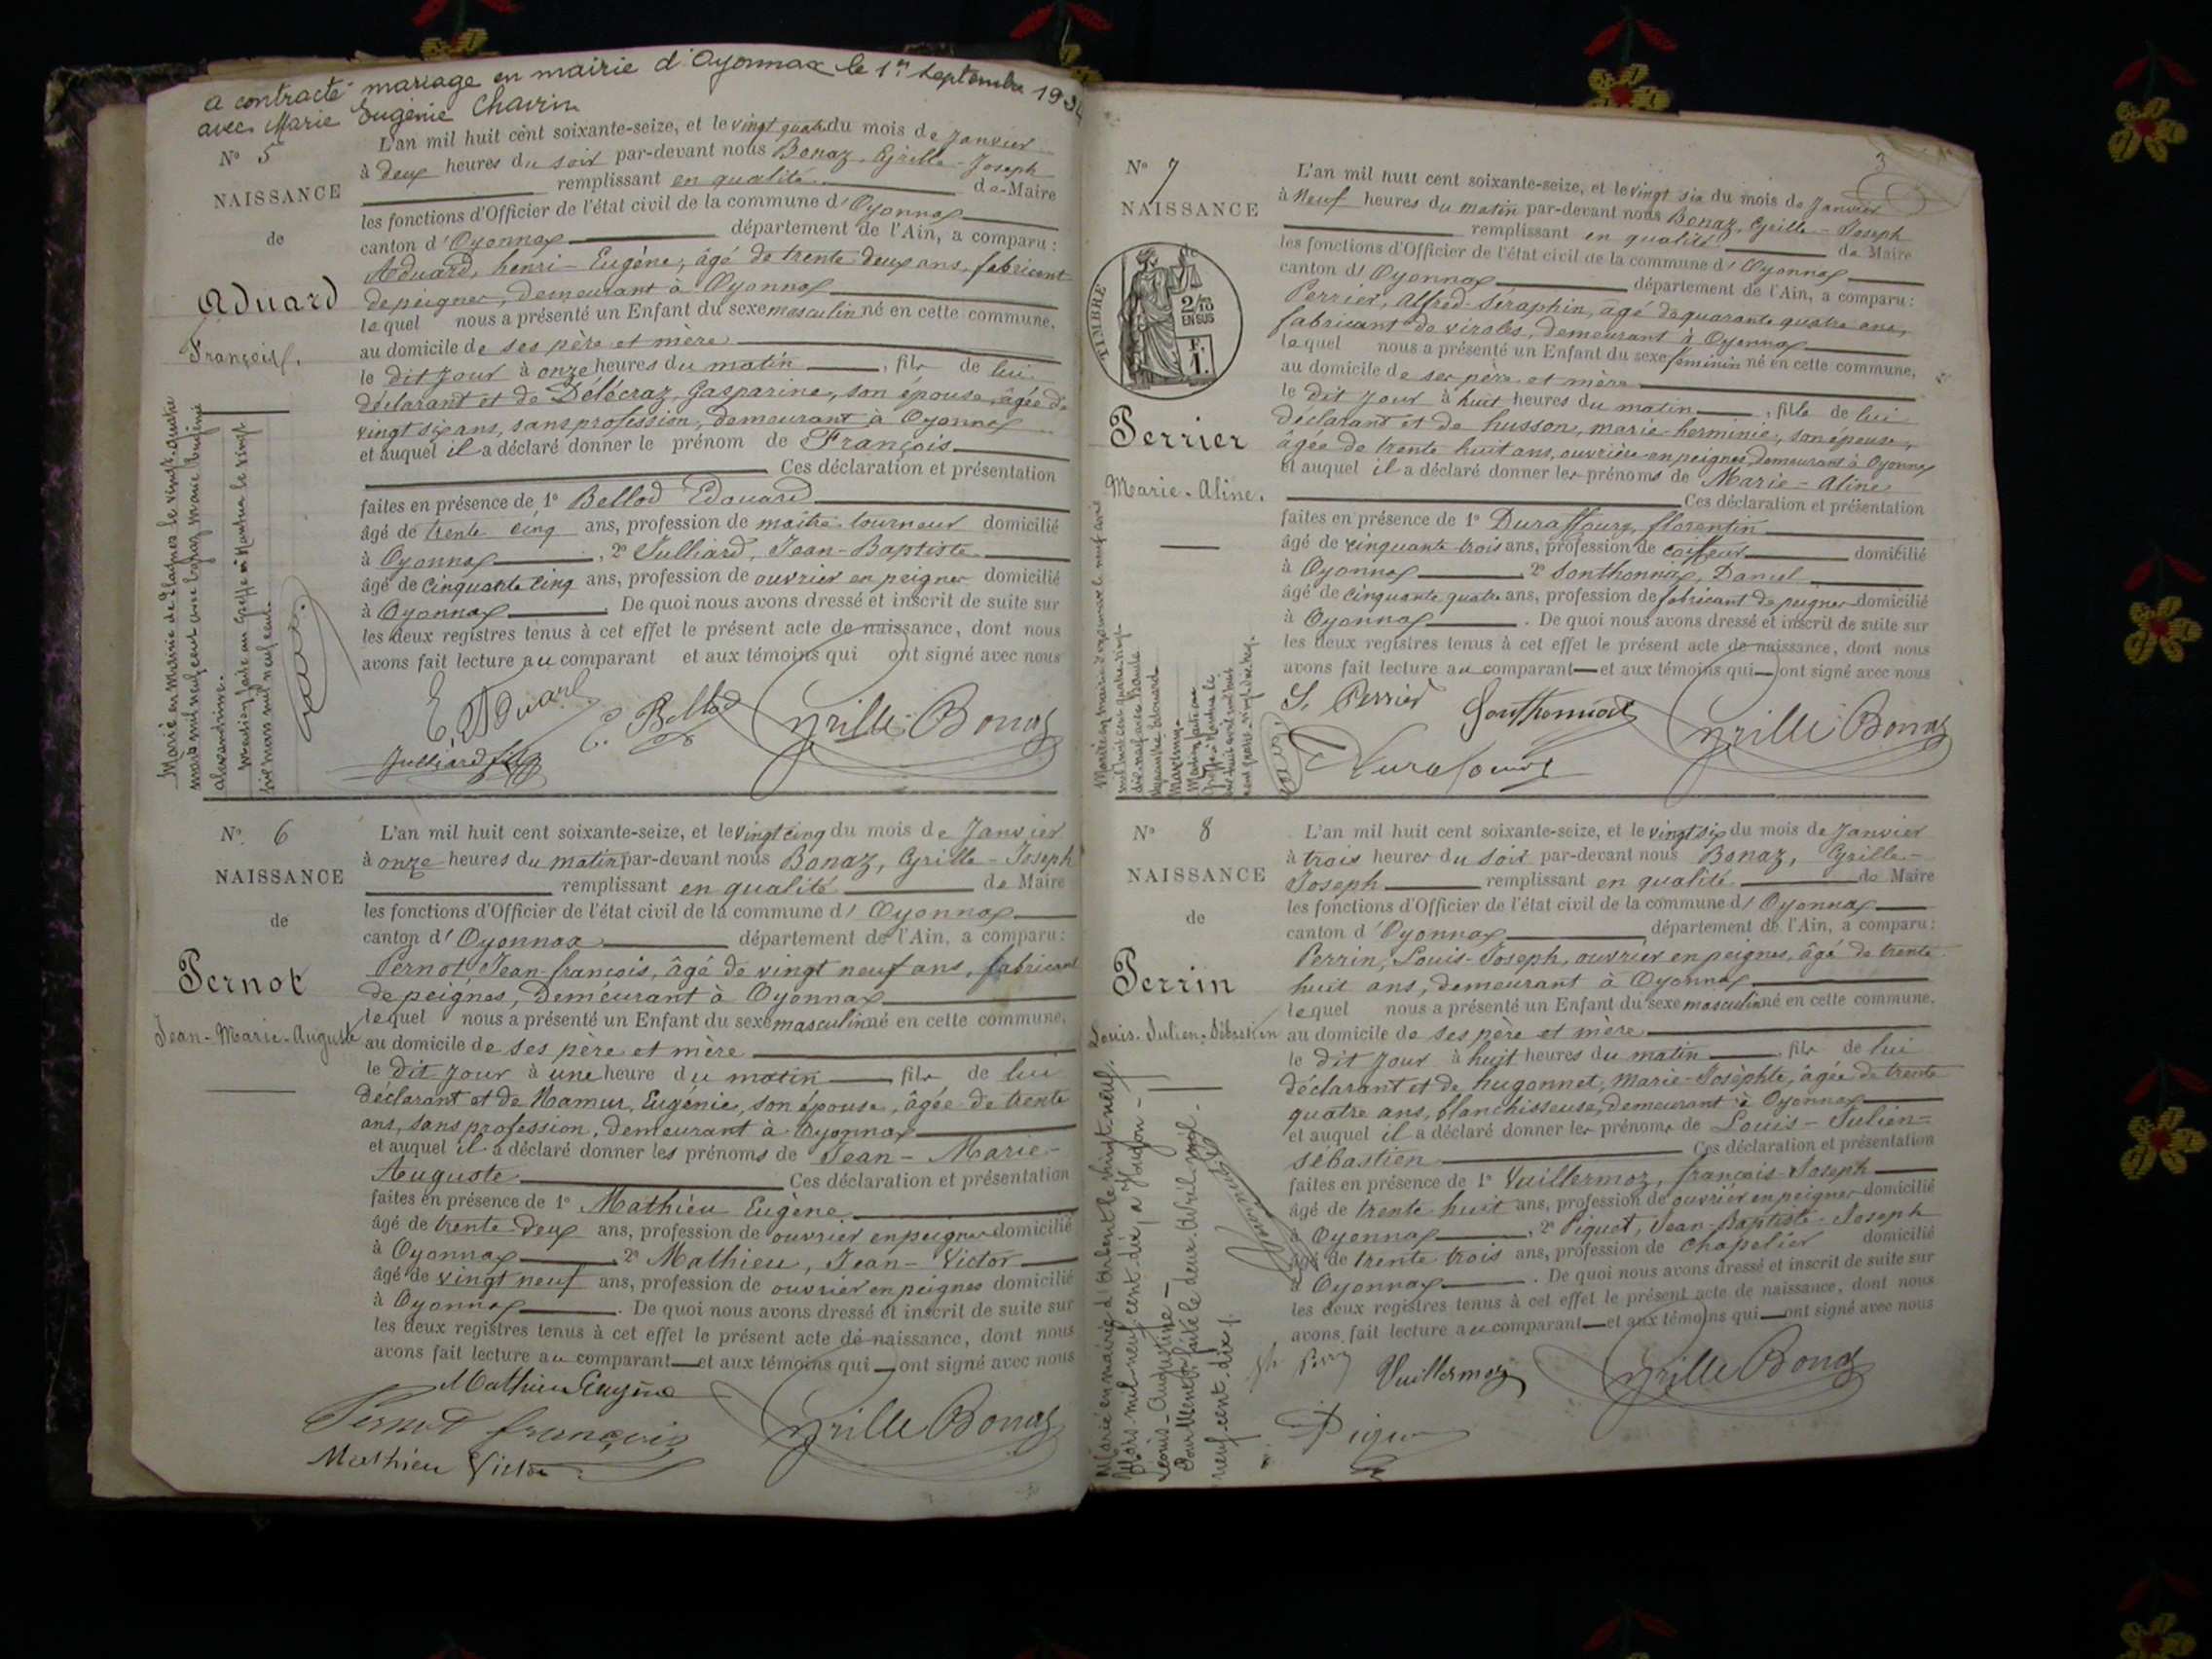 a contracté mariage en mairie d'Oyonnax le 1er septembre
avec Marie Eugénie Chavin
N° 5
NAISSANCE
de
Aduard
François.
L'an mil huit cent soixante-seize, et le vingt quatre du mois de Janvier
à deux heures du soir par-devant nous Bonaz, Cyrille-Joseph
remplissant en qualité de Maire
les fonctions d'Officier de l'état civil de la commune d'Oyonnax
canton d'Oyonnax département de l'Ain, a comparu :
Aduard, henri-Eugène, âgé de trente deux ans, fabricant
de peignes, demeurant à Oyonnax
lequel nous a présenté un Enfant du sexe masculin né en cette commune,
au domicile de ses père et mère
le dit jour à onze heures du matin, fils de lui
déclarant et de Délécraz, Gasparine, son épouse, âgée de
vingt six ans, sans profession, demeurant à Oyonnax
et auquel il a déclaré donner le prénom de François
Ces déclaration et présentation
faites en présence de 1° Bellod Edouard
âgé de trente cinq ans, profession de maître tourneur domicilié
à Oyonnax, 2° Julliard, Jean-Baptiste
âgé de cinquante cinq ans, profession de ouvrier en peignes domicilié
à Oyonnax. De quoi nous avons dressé et inscrit de suite sur
les deux registres tenus à cet effet le présent acte de naissance, dont nous
avons fait lecture au comparant et aux témoins qui ont signé avec nous
E. Aduard
E. Bellod
Cyrille Bonaz
Julliard
N° 6
NAISSANCE
de
Pernot
Jean-Marie-Auguste
L'an mil huit cent soixante-seize, et le vingt cinq du mois de Janvier
à onze heures du matin par-devant nous Bonaz, Cyrille-Joseph
remplissant en qualité de Maire
les fonctions d'Officier de l'état civil de la commune d'Oyonnax
canton d'Oyonnax département de l'Ain, a comparu :
Pernot Jean-françois, âgé de vingt neuf ans, fabricant
de peignes, Demeurant à Oyonnax
lequel nous a présenté un Enfant du sexe masculin né en cette commune,
au domicile de ses père et mère
le dit jour à une heure du matin, fils de lui
déclarant et de Namur, Eugénie, son épouse, âgée de trente
ans, sans profession, demeurant à Oyonnax
et auquel il a déclaré donner les prénoms de Jean-Marie-
Auguste Ces déclaration et présentation
faites en présence de 1° Mathieu Eugène
âgé de trente deux ans, profession de ouvrier en peignes domicilié
à Oyonnax 2° Mathieu, Jean-Victor
âgé de vingt neuf ans, profession de ouvrier en peignes domicilié
à Oyonnax. De quoi nous avons dressé et inscrit de suite sur
les deux registres tenus à cet effet le présent acte de naissance, dont nous
avons fait lecture au comparant et aux témoins qui ont signé avec nous
Mathieu Eugène
Pernod françois
Cyrille Bonaz
Mathieu Victor
3
N° 7
NAISSANCE
de
TIMBRE
2/10
EN SUS
F.
1.
Perrier
Marie-Aline.
L'an mil huit cent soixante-seize, et le vingt six du mois de Janvier
à Neuf heures du matin par-devant nous Bonaz, Cyrille-Joseph
remplissant en qualité de Maire
les fonctions d'Officier de l'état civil de la commune d'Oyonnax
canton d'Oyonnax département de l'Ain, a comparu :
Perrier, Alfred-Séraphin, âgé de quarante quatre ans,
fabricant de viroles, demeurant à Oyonnax
lequel nous a présenté un Enfant du sexe féminin né en cette commune,
au domicile de ses père et mère
le dit jour à huit heures du matin, fille de lui
déclarant et de husson, marie-herminie, son épouse,
âgée de trente huit ans, ouvrière en peignes, demeurant à Oyonnax
et auquel il a déclaré donner les prénoms de Marie-Aline
Ces déclaration et présentation
faites en présence de 1° Duraffourg, florentin
âgé de cinquante trois ans, profession de coiffeur domicilié
à Oyonnax 2° Sonthonnax, Daniel
âgé de cinquante quatre ans, profession de fabricant de peignes domicilié
à Oyonnax. De quoi nous avons dressé et inscrit de suite sur
les deux registres tenus à cet effet le présent acte de naissance, dont nous
avons fait lecture au comparant et aux témoins qui ont signé avec nous
S. Perrier
Sonthonnax
Cyrille Bonaz
N° 8
NAISSANCE
de
Perrin
Louis-Julien-Sébastien
Marié en mairie d'Arbent le vingt neuf
Mars mil neuf cent dix, à
Louis-Augustine
Pour Mention faite le deux Avril mil
neuf cent dix.
L'an mil huit cent soixante-seize, et le vingt six du mois de Janvier
à trois heures du soir par-devant nous Bonaz, Cyrille-
Joseph remplissant en qualité de Maire
les fonctions d'Officier de l'état civil de la commune d'Oyonnax
canton d'Oyonnax département de l'Ain, a comparu :
Perrin, Louis-Joseph, ouvrier en peignes, âgé de trente
huit ans, demeurant à Oyonnax
lequel nous a présenté un Enfant du sexe masculin né en cette commune,
au domicile de ses père et mère
le dit jour à huit heures du matin, fils de lui
déclarant et de hugonnet, Marie-Josèphte, âgée de trente
quatre ans, blanchisseuse, demeurant à Oyonnax
et auquel il a déclaré donner les prénoms de Louis-Julien-
Sébastien Ces déclaration et présentation
faites en présence de 1° Vuillermoz, françois-Joseph
âgé de trente huit ans, profession de ouvrier en peignes domicilié
à Oyonnax, 2° Piquet, Jean-Baptiste-Joseph
âgé de trente trois ans, profession de chapelier domicilié
à Oyonnax. De quoi nous avons dressé et inscrit de suite sur
les deux registres tenus à cet effet le présent acte de naissance, dont nous
avons fait lecture au comparant et aux témoins qui ont signé avec nous
Vuillermoz
Cyrille Bonaz